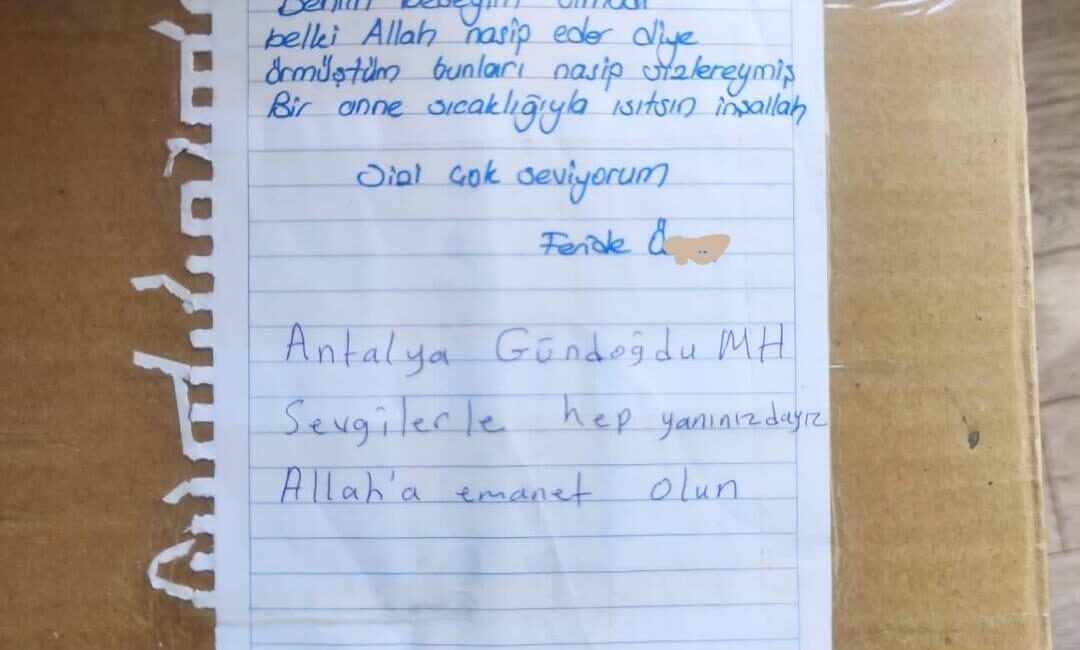 Benim bebeğim olmadı
belki Allah nasip eder diye
örmüştüm bunları nasip sizlereymiş
Bir anne sıcaklığıyla ısıtsın inşallah
Sizi çok seviyorum
Feride Ö
Antalya Gündoğdu MH
Sevgilerle hep yanınızdayız
Allah'a emanet olun